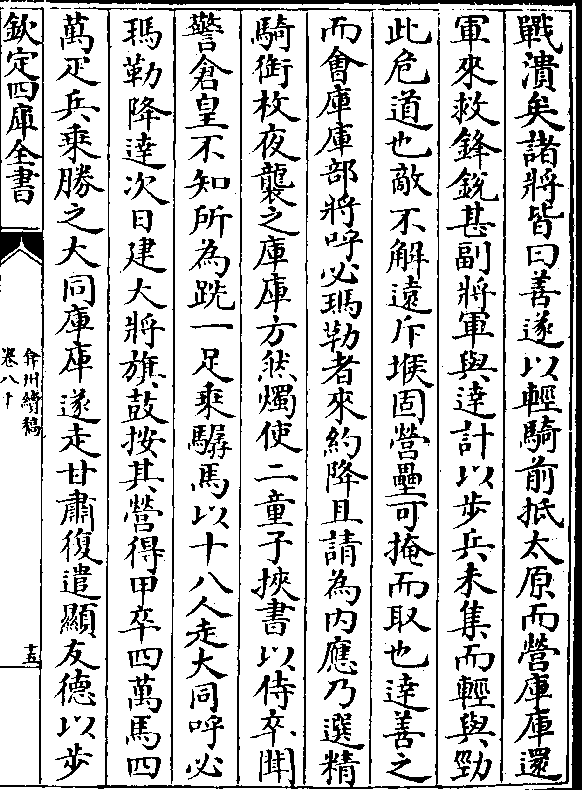 戰潰矣諸將皆曰善遂以輕騎前抵太原而營庫庫還
軍來救鋒銳甚副將軍與達計以步兵未集而輕與勁
此危道也敵不解遠斥堠固營壘可掩而取也達善之
而會庫庫部將呼必瑪勒者來約降且請為内應乃選精
騎銜枚夜襲之庫庫方然燭使二童子挾書以侍卒聞
警倉皇不知所為跣一足乘驏馬以十八人走大同呼必
瑪勒降達次日建大將旗鼓按其營得甲卒四萬馬四
萬疋兵乘勝之大同庫庫遂走甘肅復遣顯友德以步
欽定四庫全書
弇州續稿
卷八十
十五